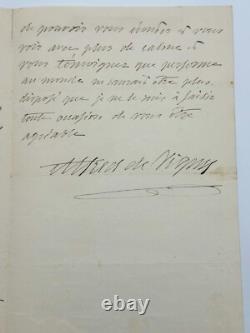 de pouvoir vous à vous
voir avec plus de calme &
vous témoigner que personne
au monde ne saurait être plus
disposé que je ne le suis à saisir
toute occasion de vous être
agréable
Alfred de Vigny